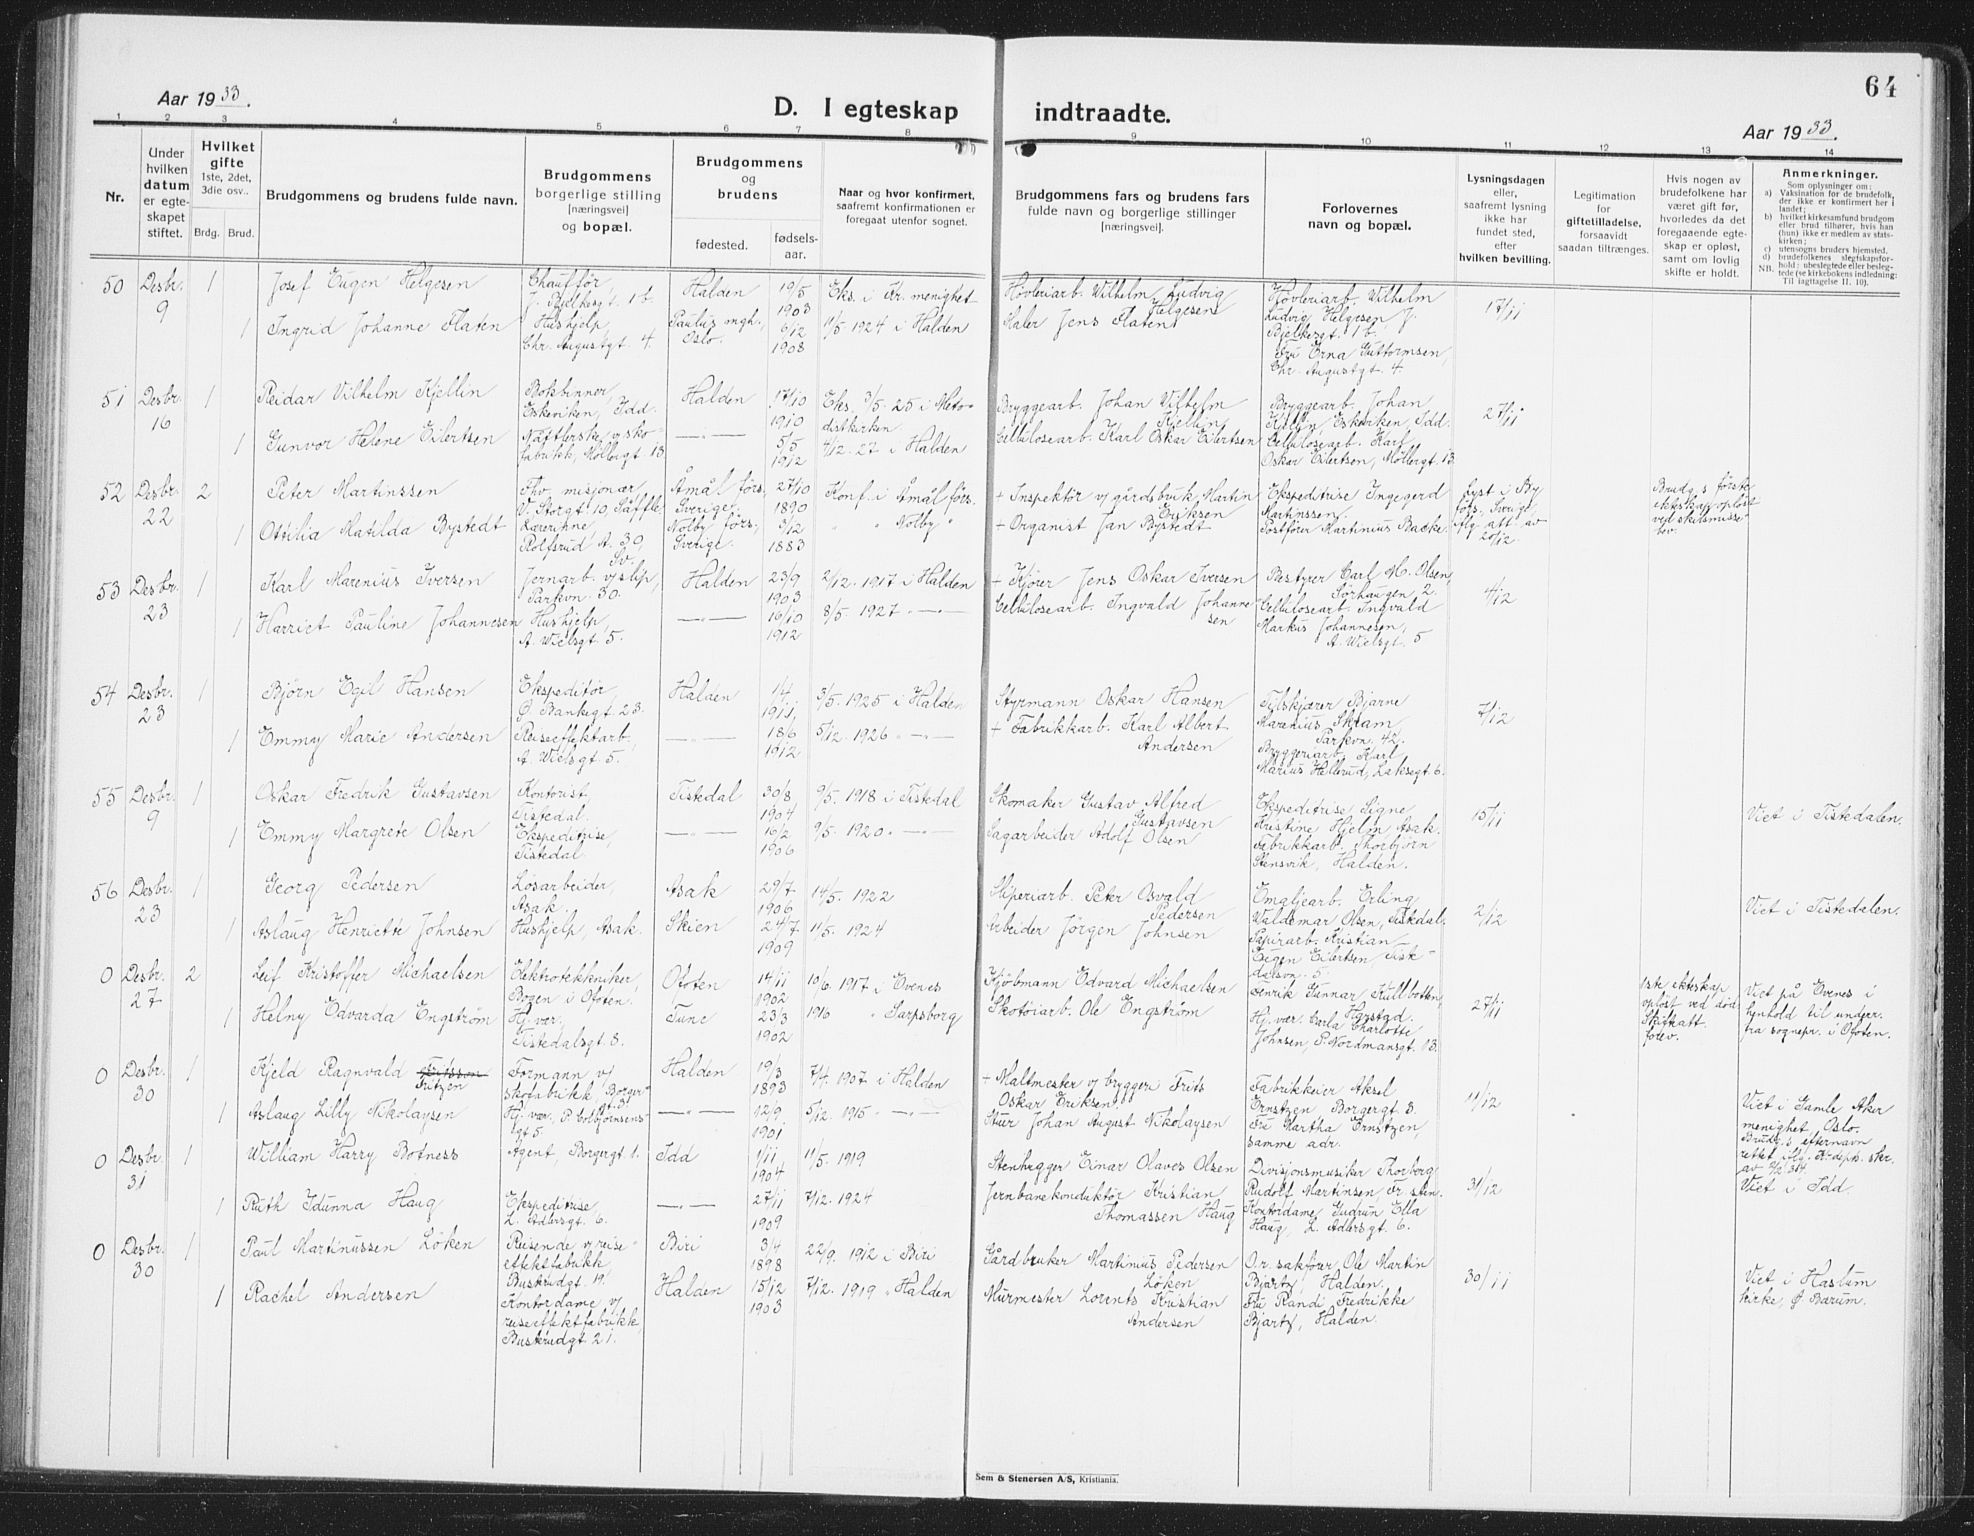 64
Aar 1933.
D. I egteskap indtraadte.
Aar 1933.
1 2 3 4 5 6 7 8 9 10 11 12 13 14
Nr.
Under hvilken datum er egteskapet stiftet.
Hvilket gifte 1ste, 2det, 3die osv..
Brdg. Brud.
Brudgommens og brudens fulde navn.
Brudgommens borgerlige stilling [næringsvei] og bopæl.
Brudgommens og brudens
fødested.
fødselsaar.
Naar og hvor konfirmert, saafremt konfirmationen er foregaat utenfor sognet.
Brudgommens fars og brudens fars fulde navn og borgerlige stillinger [næringsvei].
Forlovernes navn og bopæl.
Lysningsdagen eller, saafremt lysning ikke har fundet sted, efter hvilken bevilling.
Legitimation for giftetilladelse, forsaavidt saadan tiltrænges.
Hvis nogen av brudefolkene har været gift før, hvorledes da det foregaaende egteskap er opløst, samt om lovlig skifte er holdt.
Anmerkninger.
Som oplysninger om:
a) Vaksination for de brudefolk, der ikke er konfirmert her i landet;
b) hvilket kirkesamfund brudgom eller brud tilhører, hvis han (hun) ikke er medlem av statskirken;
c) utensogns bruders hjemsted,
d) brudefolkenes slegtskapsforhold: ubeslegtede eller beslegtede (se kirkebokens indledning:
NB. Til Iagttagelse II. 10).
50 Desbr. 9 1 Josef Eugen Helgesen Chauffør, J. Bjelkesgt. 1 b. Halden 19/5 1903 Eks. i Fr. menighet Høvleriarb. Wilhelm Ludvig Helgesen Høvleriarb. Wilhelm Ludvig Helgesen, J. Bjelkesgt. 1 b. 17/11
1 Ingrid Johanne Flaten Hushjelp, Chr. Augustgt. 4. Paulus mgh., Oslo. 6/12 1908 11/5 1924 i Halden Maler Jens Flaten Fru Erna Guttormsen, Chr. Augustgt. 4.
51 Desbr. 16 1 Reidar Vilhelm Kjellin Bokbinner, Eskeviken, Idd. Halden 17/10 1910 Eks. 3/5. 25 i Metodistkirken. Bryggearb. Johan Vilhelm Kjellin Bryggearb. Johan Kjellin, Eskeviken, Idd. 27/11
1 Gunvor Helene Eilertsen Nåtlerske v/ skofabrikk, Møllergt. 13. —"— 5/5 1912 4/12. 27 i Halden Cellulosearb. Karl Oskar Eilertsen Cellulosearb. Karl Oskar Eilertsen, Møllergt. 13.
52 Desbr. 22 2 Peter Martinssen Fhv. misjonær, V. Storgt. 10, Säffle. Åmål förs. Sverige. 27/10 1890 Konf. i Åmål förs. + Inspektör v/ gårdsbruk, Martin Eriksen Ekspeditrise Ingegerd Martinssen. Lyst i By förs., Sverige, iflg. att. av 20/12. Brudg.s første ekteskap opløst ved skilsmissebev.
1 Ottilia Matilda Bystedt Lærerinne, Rolfsrud, A. 30, Sv. Nolby förs., Sverige. 5/2 1883 " " Nolby " + Organist Jan Bystedt Postfører Martinius Backe.
53 Desbr. 23 1 Karl Marenius Iversen Jernarb. v/ slip, Parkvn. 30. Halden 23/9 1903 2/12. 1917 i Halden + Kjører Jens Oskar Iversen Bestyrer Carl M. Olsen, Sørhaugen 2. 4/12
1 Harriet Pauline Johannesen Hushjelp, A. Wielsgt. 5. —"— 16/10 1912 8/5. 1927 —"— Cellulosearb. Ingvald Johannesen Cellulosearb. Ingvald Markus Johannesen, A. Wielsgt. 5
54 Desbr. 23 1 Bjørn Egil Hansen Ekspeditør, Ø. Bankegt. 23. Halden 1/4 1911, 3/5. 1925 i Halden Styrmann Oskar Hansen Filskjærer Bjarne Marenius Skram, Parkvn. 42. 7/12
1 Emmy Marie Andersen Reiseeffektarb., A. Wielsgt. 5. —"— 18/6 1912 5/12. 1926 —"— + Fabrikkarb. Karl Albert Andersen Bryggeriarb. Karl Marius Hellerud, Laksegt. 6.
55 Desbr. 9 1 Oskar Fredrik Gustavsen Kontorist, Tistedal. Tistedal 30/8 1904 9/5. 1918 i Tistedal Skomaker Gustav Alfred Gustavsen Ekspeditrise Signe Kristine Hjelm, Asak. 15/11 Viet i Tistedalen.
1 Emmy Margrete Olsen Ekspeditrise, Tistedal. —"— 16/2 1906 9/5. 1920 —"— Sagarbeider Adolf Olsen Fabrikkarb. Thorbjørn Stensvik, Halden.
56 Desbr. 23 1 Georg Pedersen Løsarbeider, Asak. Asak 29/7 1906 14/5. 1922 Sliperiarb. Peter Osvald Pedersen Emaljearb. Erling Valdemar Olsen, Tistedal. 2/12 Viet i Tistedalen.
1 Aslaug Henriette Johnsen Hushjelp, Asak. Skien 24/7 1909 11/5. 1924 Arbeider Jørgen Johnsen Papirarb. Kristian Eugen Eilertsen Tistedalsvn. 5.
0 Desbr. 27 2 Leif Kristoffer Michaelsen Elektrotekkniker, Bogen i Ofoten. Ofoten 14/11 1902 10/6. 1917 i Evenes Kjøbmann Edvard Michaelsen Henrik Gunnar Kullbotten, Harstad. 27/11 1ste ekteskap opløst ved død. Skifteatt. forev. Viet på Evenes i henhold til underr. fra sognepr. i Ofoten.
1 Helny Edvarda Engstrøm Hj. vær., Tistedalsgt. 8. Tune 23/3 1902 1916 " Sarpsborg Skotøiarb. Ole Engstrøm Hj. vær. Carla Charlotte Johnsen, P. Nordmansgt. 13.
0 Desbr. 30 1 Kjeld Ragnvald Fritzen Formann v/ skofabrikk, Borgergt. 3. Halden 19/3 1893 7/4. 1907 i Halden + Maltmester v/ bryggeri Frits Oskar Eriksen. Fabrikkeier Aksel Ernstzen, Borgergt. 3. 11/12 Viet i Gamle Aker menighet, Oslo. Brudg.s efternavn rettet iflg. K.-dep.s skr. av
1 Aslaug Lilly Nikolaysen Hj. vær., P. Colbjørnsensgt 5. —"— 12/9 1901 5/12. 1915 —"— Stuer Johan August Nikolaysen Fru Martha Ernstzen, samme adr.
0 Desbr. 31 1 William Harry Botness Agent, Borgergt. 1. Idd 1/11 1904 11/5. 1919 Stenhugger Einar Olaves Olsen Divisjonsmusiker Thorberg Rudolf Martinsen, Fr. sten. 31/12 Viet i Idd.
1 Ruth Idunna Haug Ekspeditrise, L. Adlersgt. 6. —"— 27/11 1909 7/12. 1924 Jernbanekonduktør Kristian Thomassen Haug Kontordame Gudrun Ella Haug, L. Adlersgt. 6.
0 Desbr. 30 1 Paul Martinussen Løken Reisende v/ reiseeffektfabrikk, Buskrudgt. 19. Biri 3/4 1898 22/9. 1912 i Biri Gårdbruker Martinius Pedersen Løken O.r.sakfører Ole Martin Bjartz, Halden. 30/11 Viet i Haslum kirke, Ø. Bærum.
1 Rachel Andersen Kontordame v/ reiseeffektfabrikk, Buskrudgt. 21. Halden 15/12 1903 7/12. 1919 " Halden Murmester Lorents Kristian Andersen Fru Randi Fredrikke Bjartz, Halden.
Sem & Stenersen A/S, Kristiania.